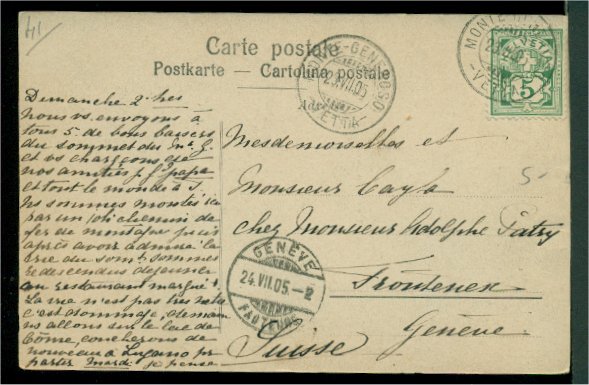 Carte postale
Postkarte — Cartolina postale
MONTE
HELVETIA
5
GENEROSO
23.VII.05
VETTA
Dimanche 2 hes
Nous vs envoyons à
tous 5 de bons baisers
du sommet du M. G.
et vs chargeons de
nos amitiés p. f. papa
et tout le monde à
Ns sommes montés ici
par un joli chemin de
fer de montagne puis
après avoir admiré la
vue du som. sommes
redescendus déjeuner
au restaurant marqué
La vue n'est pas très nette
c'est dommage, demain
ns allons sur le lac de
Côme, coucherons de
nouveau à Lugano pr
partir mardi je pense
Mesdemoiselles et
Monsieur Cayla
chez Monsieur Adolphe Patry
Frontenex
Genève
Suisse
5
GENÈVE
24.VII.05.-2
FACTEURS